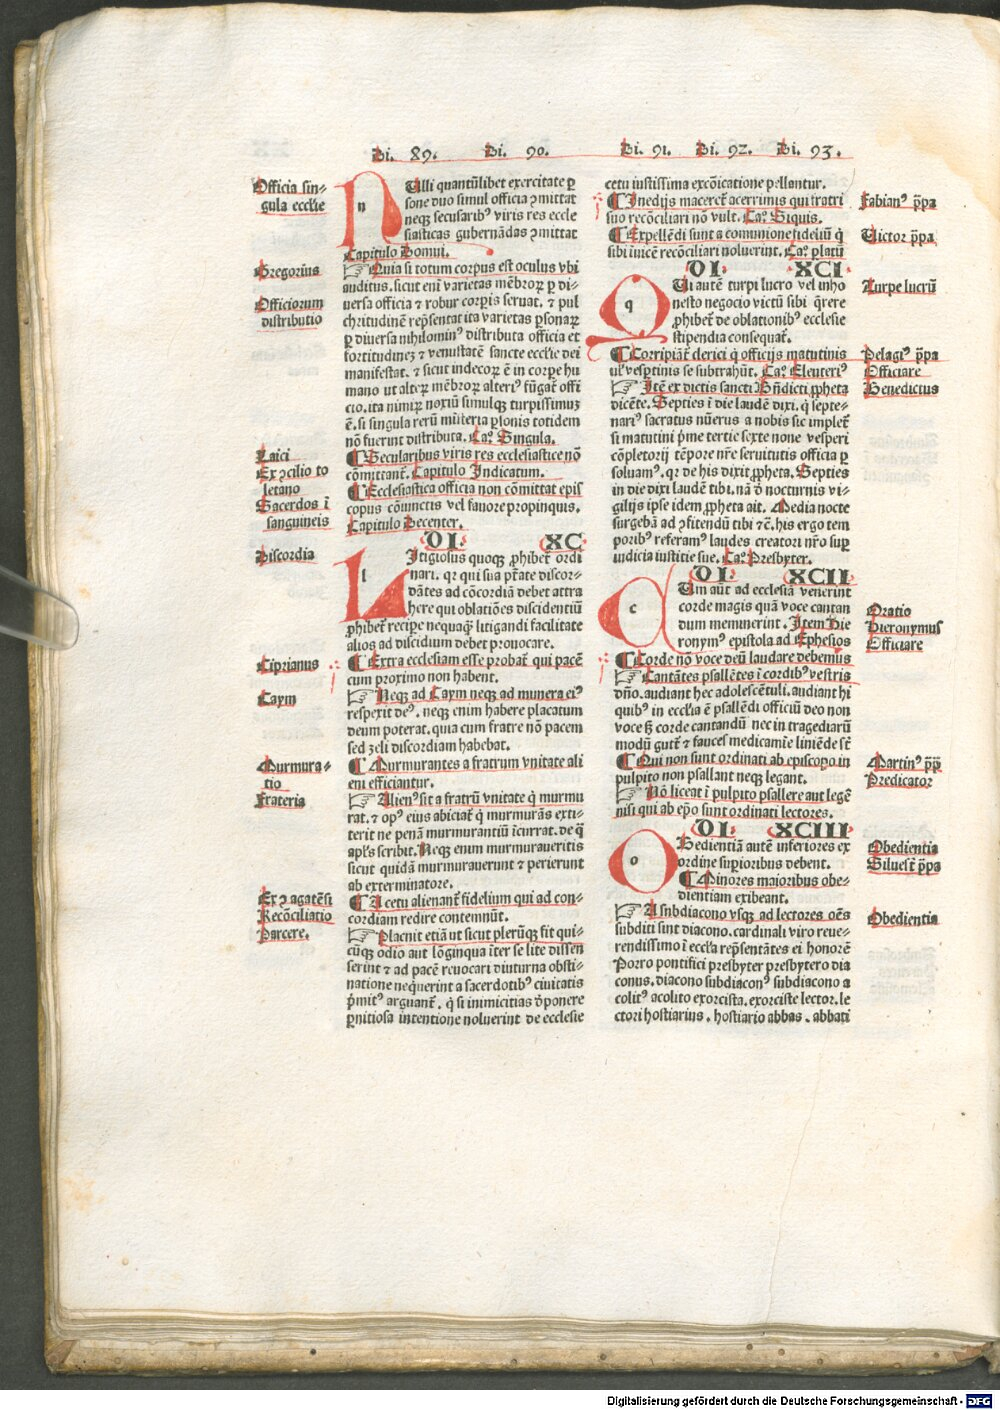 Di. 89. Di. 90. Di. 91. Di. 92. Di. 93.
Officia sin-
gula ecclie
Gregorius
Officiorum
distributio
Laici
Ex ꝯcilio to
letano
Sacerdos ī
sanguineis
Discordia
Ciprianus
Caym
Murmura-
tio
Frateria
Ex ꝯ agatēsi
Recōciliatio
Parcere.
Nulli quantūlibet exercitate ꝑ
sone duo simul officia ꝯmittat
neqꝫ seculariбꝰ viris res eccle
siasticas gubernādas ꝯmittat
Capitulo Domui.
☞ Quia si totum corpus est oculus vbi
auditus. sicut enī varietas mēbroꝝ ꝑ di-
uersa officia ⁊ robur corpis seruat. ⁊ pul
chritudinē rep̄sentat ita varietas ꝑsonaꝝ
ꝑ diuersa nihilominꝰ distributa officia et
fortitudinez ⁊ venustatē sancte ecclie dei
manifestat. ⁊ sicut indecoꝝ ē in corpe hu
mano ut alteꝝ mēbroꝝ alteriꝰ fūgat̄ offi
cio. ita nimiꝝ noxiū simulqꝫ turpissimuꝫ
ē. si singula rerū mīsteria ꝑsonis totidem
nō fuerint distributa. Caꝰ Singula.
¶ Secularibus viris res ecclesiastice nō
cōmittant̄. Capitulo Indicatum.
¶ Ecclesiastica officia non cōmittat epis
copus cōiunctis vel fauore propinquis.
Capitulo Decenter.
DI. XC
Litigiosus quoqꝫ ꝓhibet̄ ordi
nari. qꝛ qui sua p̄tate discor-
dātes ad cōcordiā debet attra
here qui oblatiōes discidentiū
ꝓhibet̄ recipe nequaqꝫ litigandi facilitate
alios ad discidium debet prouocare.
¶ Extra ecclesiam esse probat̄ qui pacē
cum proximo non habent.
☞ Neqꝫ ad Caym neqꝫ ad munera eiꝰ
respexit deꝰ. neqꝫ enim habere placatum
deum poterat. quia cum fratre nō pacem
sed zeli discordiam habebat.
¶ Murmurantes a fratrum vnitate ali
eni efficiantur.
☞ Alienꝰ sit a fratrū vnitate q̇ murmu
rat. ⁊ opꝰ eius abiciat̄ q̇ murmurās exti-
terit ne penā murmurantiū īcurrat. de q̄
apl̄s scribit. Neqꝫ enim murmuraueritis
sicut quidā murmurauerunt ⁊ perierunt
ab exterminatore.
¶ A cetu alienant̄ fidelium qui ad con-
cordiam redire contemnūt.
☞ Placuit etiā ut sicut plerūqꝫ fit qui-
cūqꝫ odio aut lōginqua īter se lite dissen
serint ⁊ ad pacē reuocari diuturna obsti-
natione nequerint a sacerdotibꝰ ciuitatis
p̄mitꝰ arguant̄. q̇ si inimicitias d̄ponere
ꝑnitiosa intentione noluerint de ecclesie
cetu iustissima excōicatione pellantur.
¶ In edijs maceret̄ acerrimis qui fratri
suo recōciliari nō vult. Caꝰ Siquis.
¶ Expellēdi sunt a comunione fideliū q̇
sibi inuicē recōciliari noluerint. Caꝰ platū
DI. XCI
Qui autē turpi lucro vel inho
nesto negocio victū sibi q̄rere
ꝓhibet̄ de oblationibꝰ ecclesie
stipendia consequat̄.
¶ Corripiāt̄ clerici q̇ officijs matutinis
uĺ vesptinis se subtrahūt. Caꝰ Eleuteriꝰ
☞ Itē ex dictis sancti Bn̄dicti ꝓpheta
dicēte. Septies ī die laudē dixi. q̇ septe-
nariꝰ sacratus nūerus a nobis sic implet̄
si matutini p̄me tertie sexte none vesperi
cōpletorij tēpore nr̄e seruitutis officia ꝑ
soluamꝰ. qꝛ de his dixit ꝓpheta. Septies
in die dixi laudē tibi. nā d̄ nocturnis vi-
gilijs ipse idem ꝓpheta ait. Media nocte
surgebā ad ꝯfitendū tibi ⁊c̄. his ergo tem
poribꝰ referamꝰ laudes creatori nr̄o suꝑ
iudicia iusticie sue. Caꝰ Presbyter.
DI. XCII
Cum aūt ad ecclesiā venerint
corde magis quā voce cantan
dum meminerint. Item hie
ronymꝰ epistola ad Ephesios
¶ Corde nō voce deū laudare debemus
☞ Cantātes psallētes ī cordibꝰ vestris
dn̄o. audiant hec adolescētuli. audiant hi
quibꝰ in ecclīa ē psallēdi officiū deo non
voce sꝫ corde cantandū nec in tragediarū
modū gutt̄ ⁊ fauces medicamīe liniēde st̄
¶ Qui non sunt ordinati ab episcopo in
pulpito non psallant neqꝫ legant.
☞ Nō liceat ī pulpito psallere aut legē
nisi qui ab ep̄o sunt ordinati lectores.
DI. XCIII
Obedientiā autē inferiores ex
ordine suꝑioribus debent.
¶ Minores maioribus obe-
dientiam exibeant.
☞ A subdiacono vsqꝫ ad lectores oēs
subditi sint diacono. cardinali viro reue-
rendissimo ī ecclīa rep̄sentātes ei honorē
Porro pontifici presbyter presbytero dia
conus. diacono subdiaconꝰ subdiacono a
colitꝰ acolito exorcista. exorciste lector. le
ctori hostiarius. hostiario abbas. abbati
Fabianꝰ pp̄a
Victor pp̄a
Turpe lucrū
Pelagiꝰ pp̄a
Officiare
Benedictus
Oratio
Hieronymus
Officiare
Martinꝰ pp̄
Predicator
Obedientia
Siluest̄ pp̄a
Obedientia
Digitalisierung gefördert durch die Deutsche Forschungsgemeinschaft - DFG